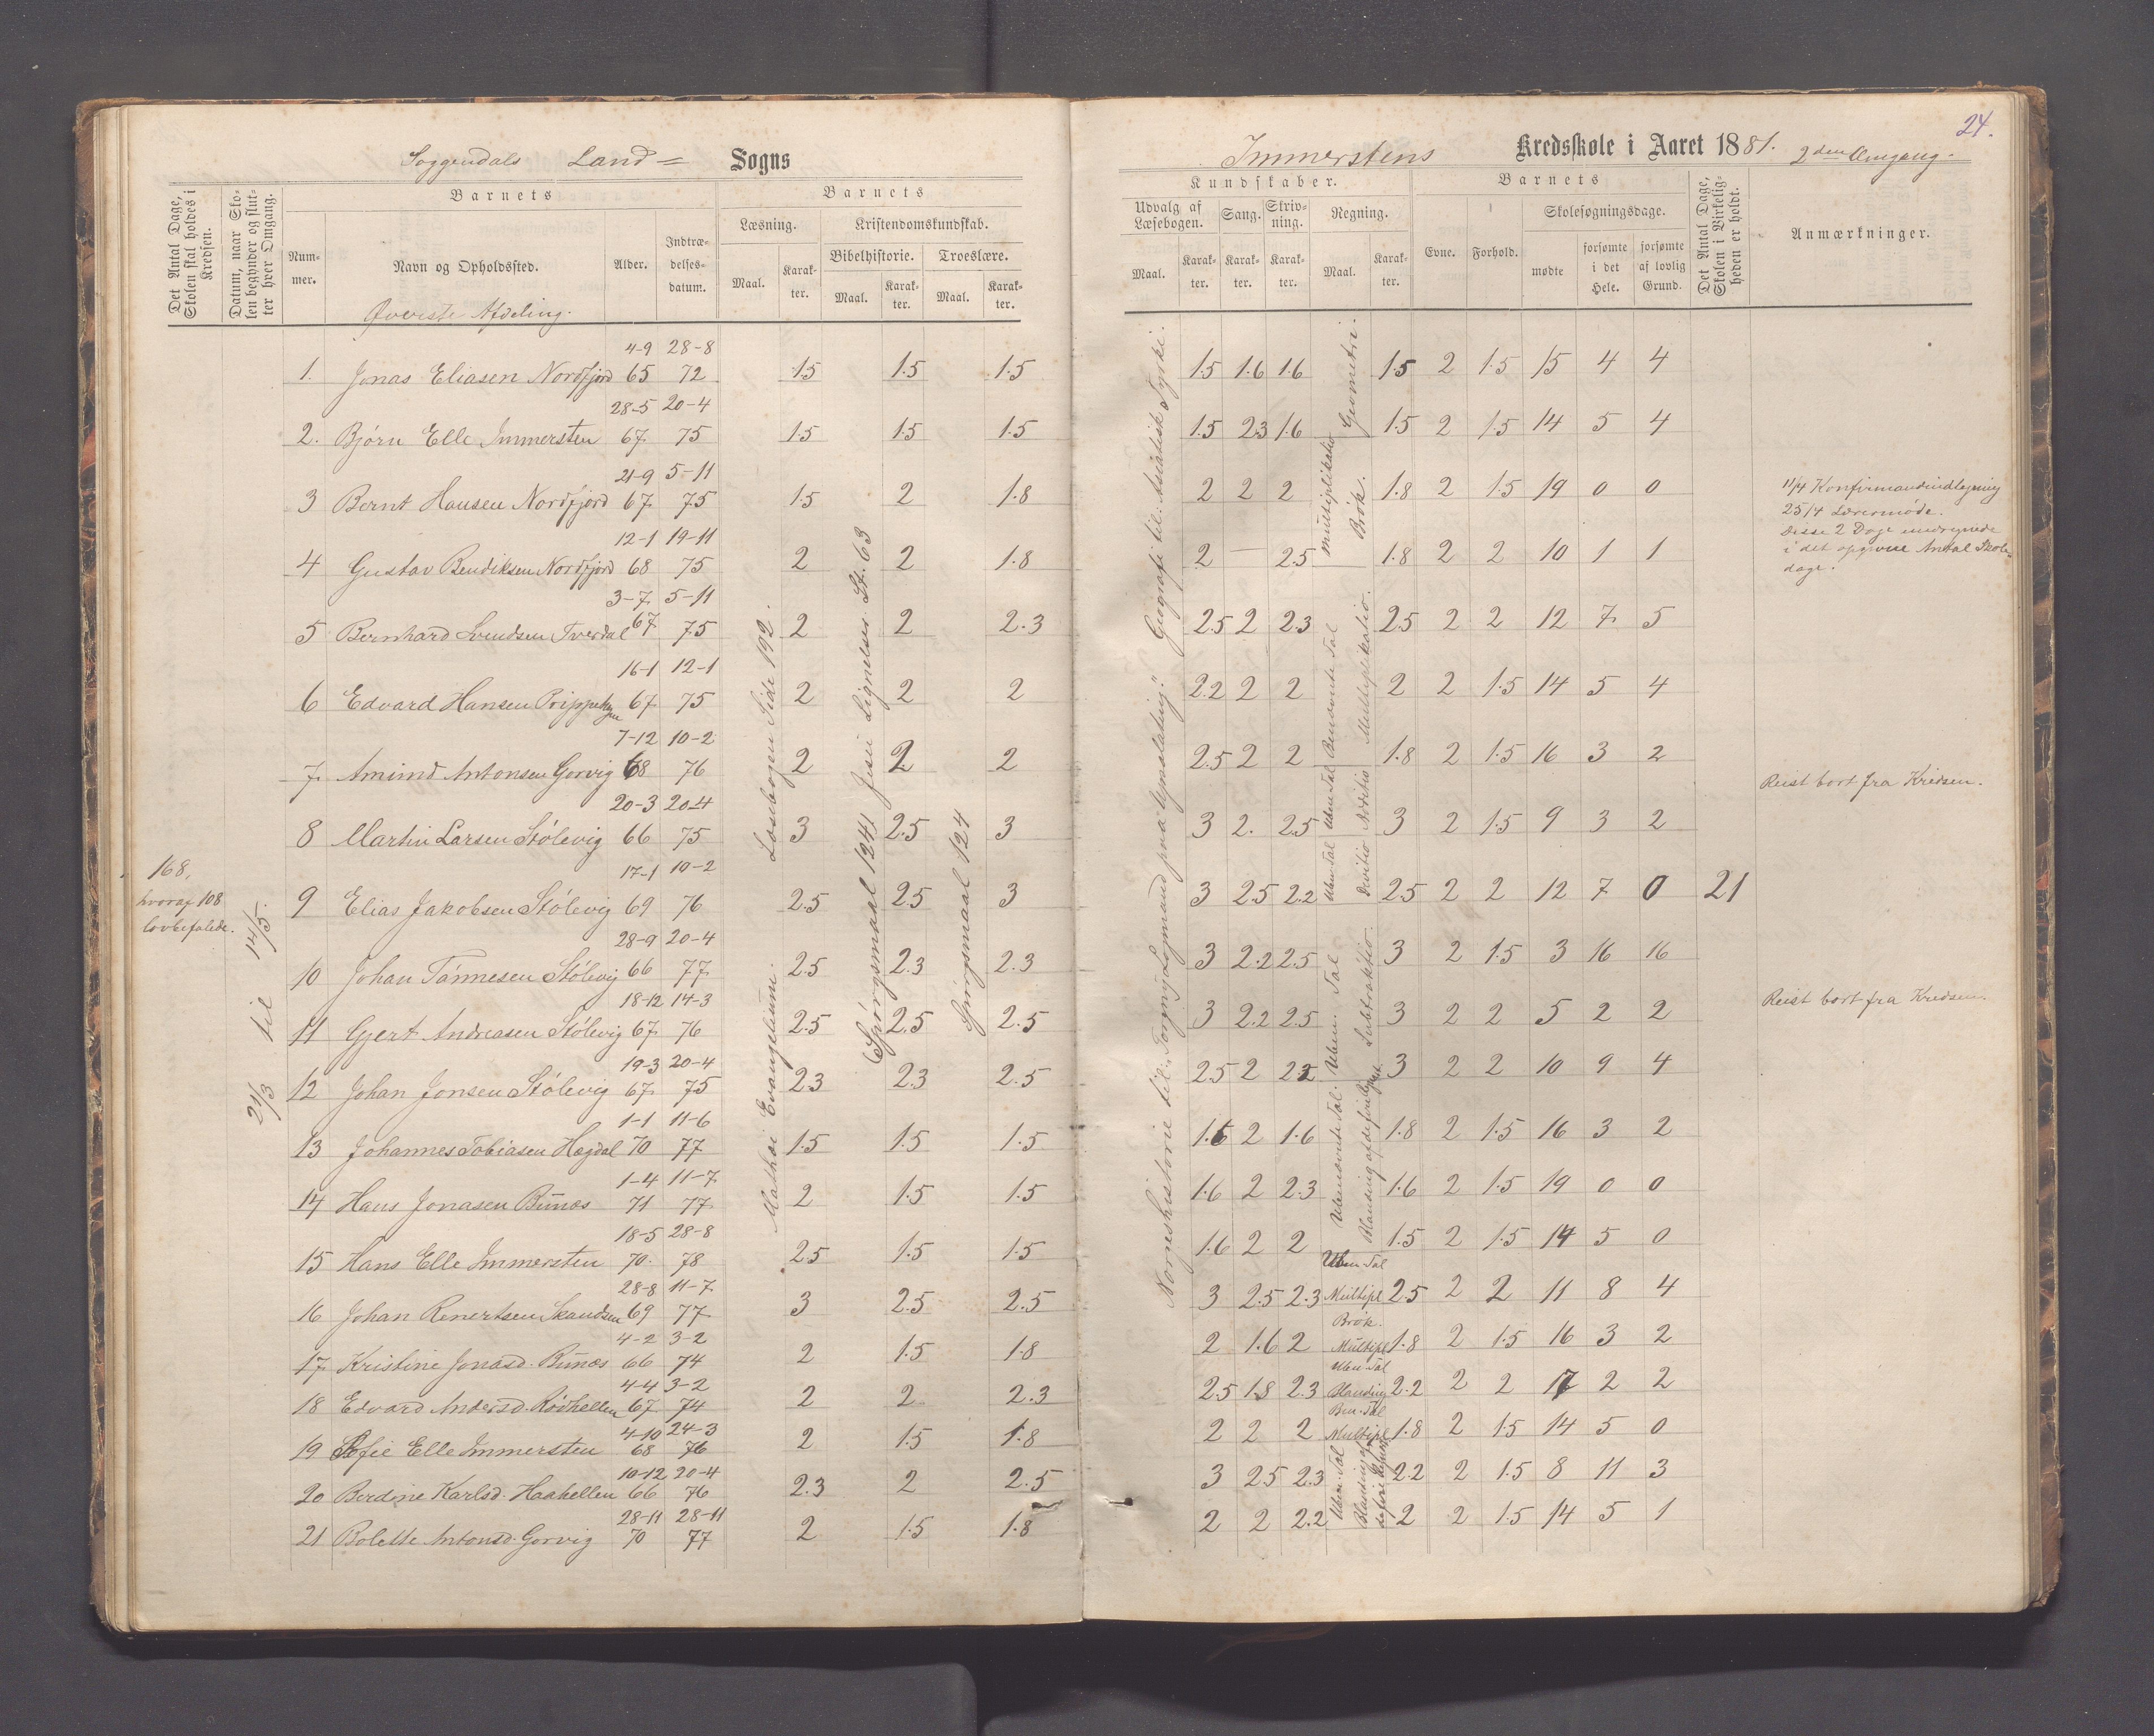 24.
Soggendals Land= Sogns
Immerstens Kredsskole i Aaret 1881. 2den Omgang.
Det Antal Dage, Skolen skal holdes i Kredsen.
Datum, naar Skolen begynder og slutter hver Omgang.
Barnets
Barnets
Kundskaber.
Barnets
Det Antal Dage, Skolen i Virkeligheden er holdt.
Anmærkninger.
Nummer.
Navn og Opholdssted.
Alder.
Indtrædelsesdatum.
Læsning.
Kristendomskundskab.
Bibelhistorie.
Troeslære.
Maal.
Karakter.
Maal.
Karakter.
Maal.
Karakter.
Udvalg af Læsebogen.
Sang.
Skrivning.
Regning.
Maal.
Karakter.
Karakter.
Karakter.
Maal.
Karakter.
Evne.
Forhold.
Skolesøgningsdage.
mødte
forsømte i det Hele.
forsømte af lovlig Grund.
Øverste Afdeling.
168,
hvoraf 108
lovbefalede.
21/3 til 14/5.
Mathæi Evangelium. Læsebogen Side 192.
(Spørgsmaal 124) Jesu Lignelser St. 63
Spørgsmaal 124
Norgeshistorie til "Torgny Lagmand paa Upsalating." Geografi til Asiatisk Tyrki.
Geometri.
Multiplikatio
Brøk.
1. Jonas Eliasen Nordfjord 4-9 65 28-8 72 1.5 1.5 1.5 1.5 1.6 1.6 1.5 2 1.5 15 4 4
2. Bjørn Elle Immersten 28-5 67 20-4 75 1.5 1.5 1.5 1.5 2.3 1.6 1.5 2 1.5 14 5 4
3 Bernt Hansen Nordfjord 21-9 67 5-11 75 1.5 2 1.8 2 2 2 1.8 2 1.5 19 0 0
4 Gustav Bendiksen Nordfjord 12-1 68 19-11 75 2 2 1.8 2 — 2.5 1.8 2 2 10 1 1
5 Bernhard Svendsen Tverdal 3-7 67 5-11 75 2 2 2.3 2.5 2 2.3 2.5 2 2 12 7 5
6 Edvard Hansen 16-1 67 12-1 75 2 2 2 2.2 2 2 2 2 1.5 14 5 4
7 Amund Antonsen Gorvig 7-12 68 10-2 76 2 2 2 2.5 2 2 1.8 2 1.5 16 3 2
8 Martin Larsen Stølevig 20-3 66 20-4 75 3 2.5 3 3 2. 2.5 3 2 1.5 9 3 2
9 Elias Jakobsen Stølevig 17-1 69 10-2 76 2.5 2.5 3 3 2.5 2.2 2.5 2 2 12 7 0 21
10 Johan Tønnesen Stølevig 28-9 66 20-4 77 2.5 2.3 2.3 3 2.2 2.5 3 2 1.5 3 16 16
11 Gjert Andreasen Stølevig 18-12 67 14-3 76 2.5 2.5 2.5 3 2.2 2.5 3 2 2 5 2 2
12 Johan Jonsen Stølevig 19-3 67 20-4 75 2.3 2.3 2.5 2.5 2 2.2 3 2 2 10 9 4
13 Johannes Tobiasen Hegdal 1-1 70 11-6 77 1.5 1.5 1.5 1.6 2 1.6 1.8 2 1.5 16 3 2
14 Hans Jonasen Bunes 1-4 71 11-7 77 2 1.5 1.5 1.6 2 2.3 1.6 2 1.5 19 0 0
15 Hans Elle Immersten 18-5 70. 28-8 78 2.5 1.5 1.5 1.6 2 2 1.5 2 1.5 14 5 0
16 Johan Renertsen 28-8 69 11-7 77 3 2.5 2.5 3 2.5 2.3 Uben-Tal Multipl 2.5 2 2 11 8 4
17 Kristine Jonasd. Bunes 4-2 66 3-2 74 2 1.5 1.8 2 1.6 2 Brøk. Multipl 1.8 2 1.5 16 3 2
18 Edvard Andersd. Rødhellen 4-4 67 3-2 74 2 2 2.3 2.5 1.8 2.3 Uben-Tal Blanding 2.2 2 2 17 2 2
19 Sofie Elle Immersten 4-10 68 24-3 76 2 1.5 1.8 2 2 2 Ben-Tal Multipl 1.8 2 1.5 14 5 0
20 Berdine Karlsd. Haahellen 10-12 66 20-4 76 2.3 2 2.5 3 2.5 2.3 2.2 2 1.5 8 11 3
21 Bolette Antonsd. Gorvig 28-11 70 28-11 77 2 1.5 1.8 2 2 2.2 2 2 1.5 14 5 1
Uben-Tal Benævnte Tal
Divitio Additio Multiplikatio.
Ubenævnte Tal. Uben. Tal
Subtraktio.
11/4 Konfirmandindtegning
25/4 Lærermøde.
Disse 2 Dage
i det opgivne Antal Skole-
dage.
Reist bort fra Kredsen.
Reist bort fra Kredsen.